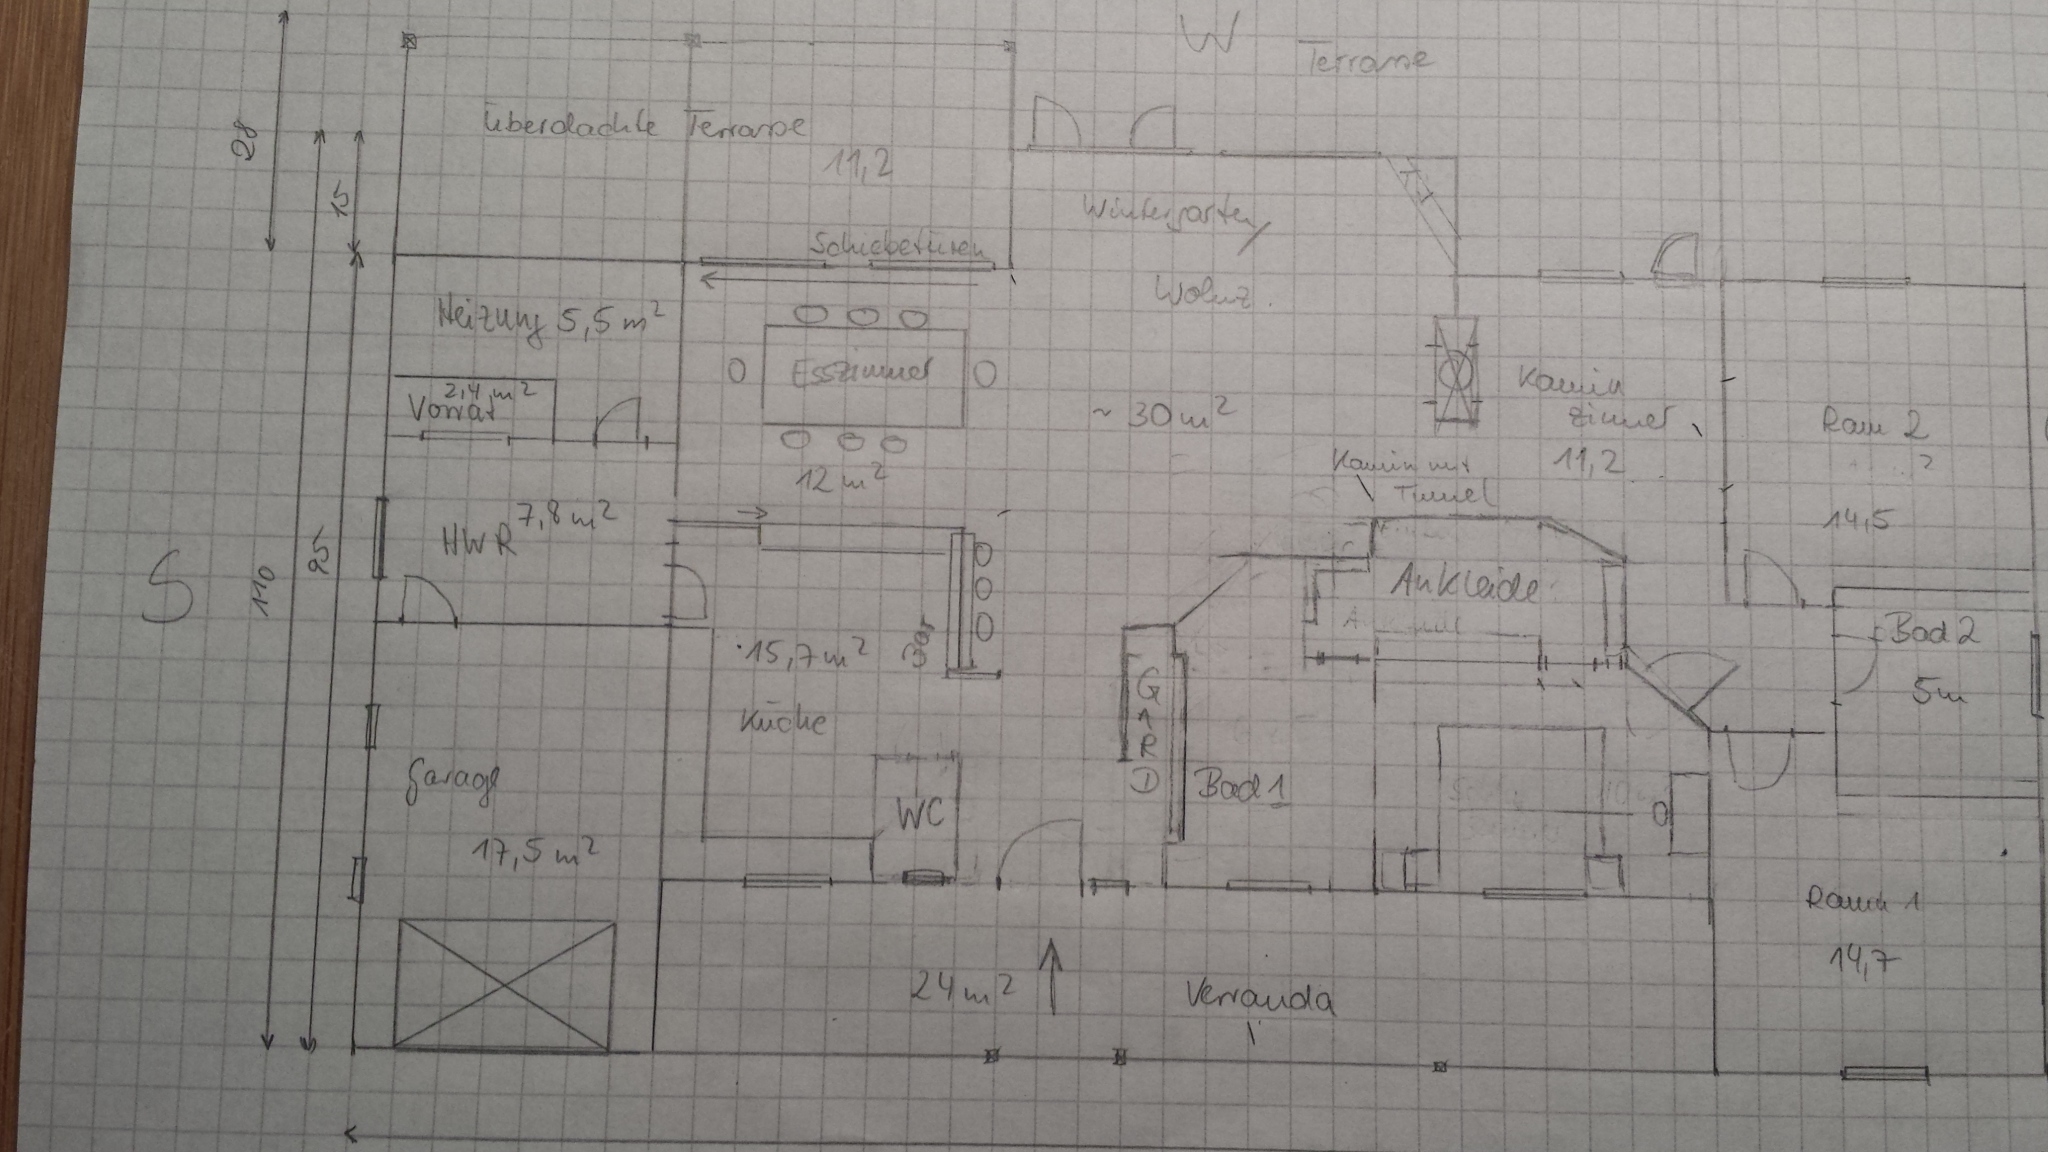 W
Terrasse
28
Überdachte Terrasse
11,2
15
Wintergarten/
Schiebetüren
Wohnz.
Heizung 5,5 m²
Esszimmer
2,4 m²
Vorrat
~ 30 m²
Kamin
zimmer
11,2
Raum 2
?
14,5
12 m²
Kamin mit
Tunnel
7,8 m²
HWR
S
110
95
Ankleide
Bad 2
5m
15,7 m²
Bar
Küche
GARD
Garage
17,5 m²
WC
Bad 1
Raum 1
14,7
24 m²
Verranda